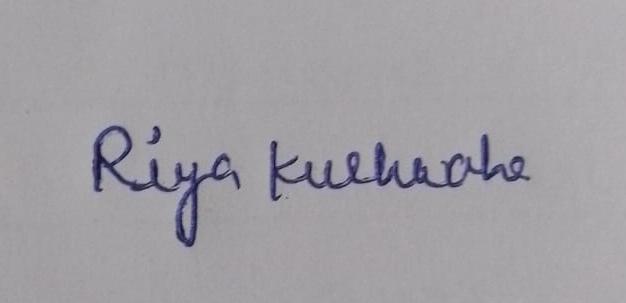 Riya Kushwaha